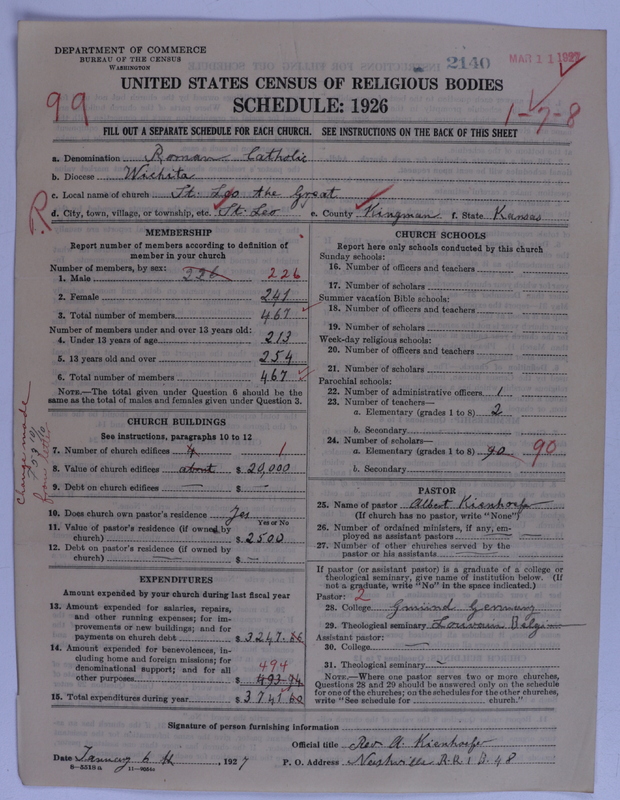 DEPARTMENT OF COMMERCE
BUREAU OF THE CENSUS
WASHINGTON
2140
MAR 11 1927
UNITED STATES CENSUS OF RELIGIOUS BODIES
SCHEDULE: 1926
99
1-7-8
FILL OUT A SEPARATE SCHEDULE FOR EACH CHURCH. SEE INSTRUCTIONS ON THE BACK OF THIS SHEET
a. Denomination Roman Catholic
b. Diocese Wichita
c. Local name of church St. Leo the Great
d. City, town, village, or township, etc. St. Leo e. County Kingman f. State Kansas
R
MEMBERSHIP
Report number of members according to definition of
member in your church
Number of members, by sex:
1. Male 226 226
2. Female 241
3. Total number of members 467
Number of members under and over 13 years old:
4. Under 13 years of age 213
5. 13 years old and over 254
6. Total number of members 467
NOTE.—The total given under Question 6 should be
same as the total of males and females given under Question 3.
CHURCH BUILDINGS
See instructions, paragraphs 10 to 12
7. Number of church edifices 4 1
8. Value of church edifices about $ 20,000
9. Debt on church edifices — $ —
Change made
10. Does church own pastor's residence Yes
Yes or No
11. Value of pastor's residence (if owned by
church) $ 2500
12. Debt on pastor's residence (if owned by
church) — $ —
EXPENDITURES
Amount expended by your church during last fiscal year
13. Amount expended for salaries, repairs,
and other running expenses; for im-
provements or new buildings; and for
payments on church debt $ 3247.66
14. Amount expended for benevolences, in-
cluding home and foreign missions; for
denominational support; and for all 494
other purposes $ 493.94
15. Total expenditures during year $ 3741.60
CHURCH SCHOOLS
Report here only schools conducted by this church
Sunday schools:
16. Number of officers and teachers
17. Number of scholars
Summer vacation Bible schools:
18. Number of officers and teachers
19. Number of scholars
Week-day religious schools:
20. Number of officers and teachers
21. Number of scholars
Parochial schools:
22. Number of administrative officers 1
23. Number of teachers—
a. Elementary (grades 1 to 8) 2
b. Secondary
24. Number of scholars—
a. Elementary (grades 1 to 8) 90 90
b. Secondary
PASTOR
25. Name of pastor Albert Kienhoefer
(If church has no pastor, write "None")
26. Number of ordained ministers, if any, em-
ployed as assistant pastors —
27. Number of other churches served by the
pastor or his assistants —
If pastor (or assistant pastor) is a graduate of a college or
theological seminary, give name of institution below. (If
not a graduate, write "No" in the space indicated.)
Pastor: 2
28. College Gmünd Germany
29. Theological seminary Louvain Belgium
Assistant pastor:
30. College —
31. Theological seminary —
NOTE.—Where one pastor serves two or more churches,
Questions 28 and 29 should be answered only on the schedule
for one of the churches; on the schedules for the other churches,
write "See schedule for church."
Signature of person furnishing information
Official title Rev A. Kienhoefer
Date January 6 th, 1927 P. O. Address Nashville R.R 1 B. 48
8—5518 a